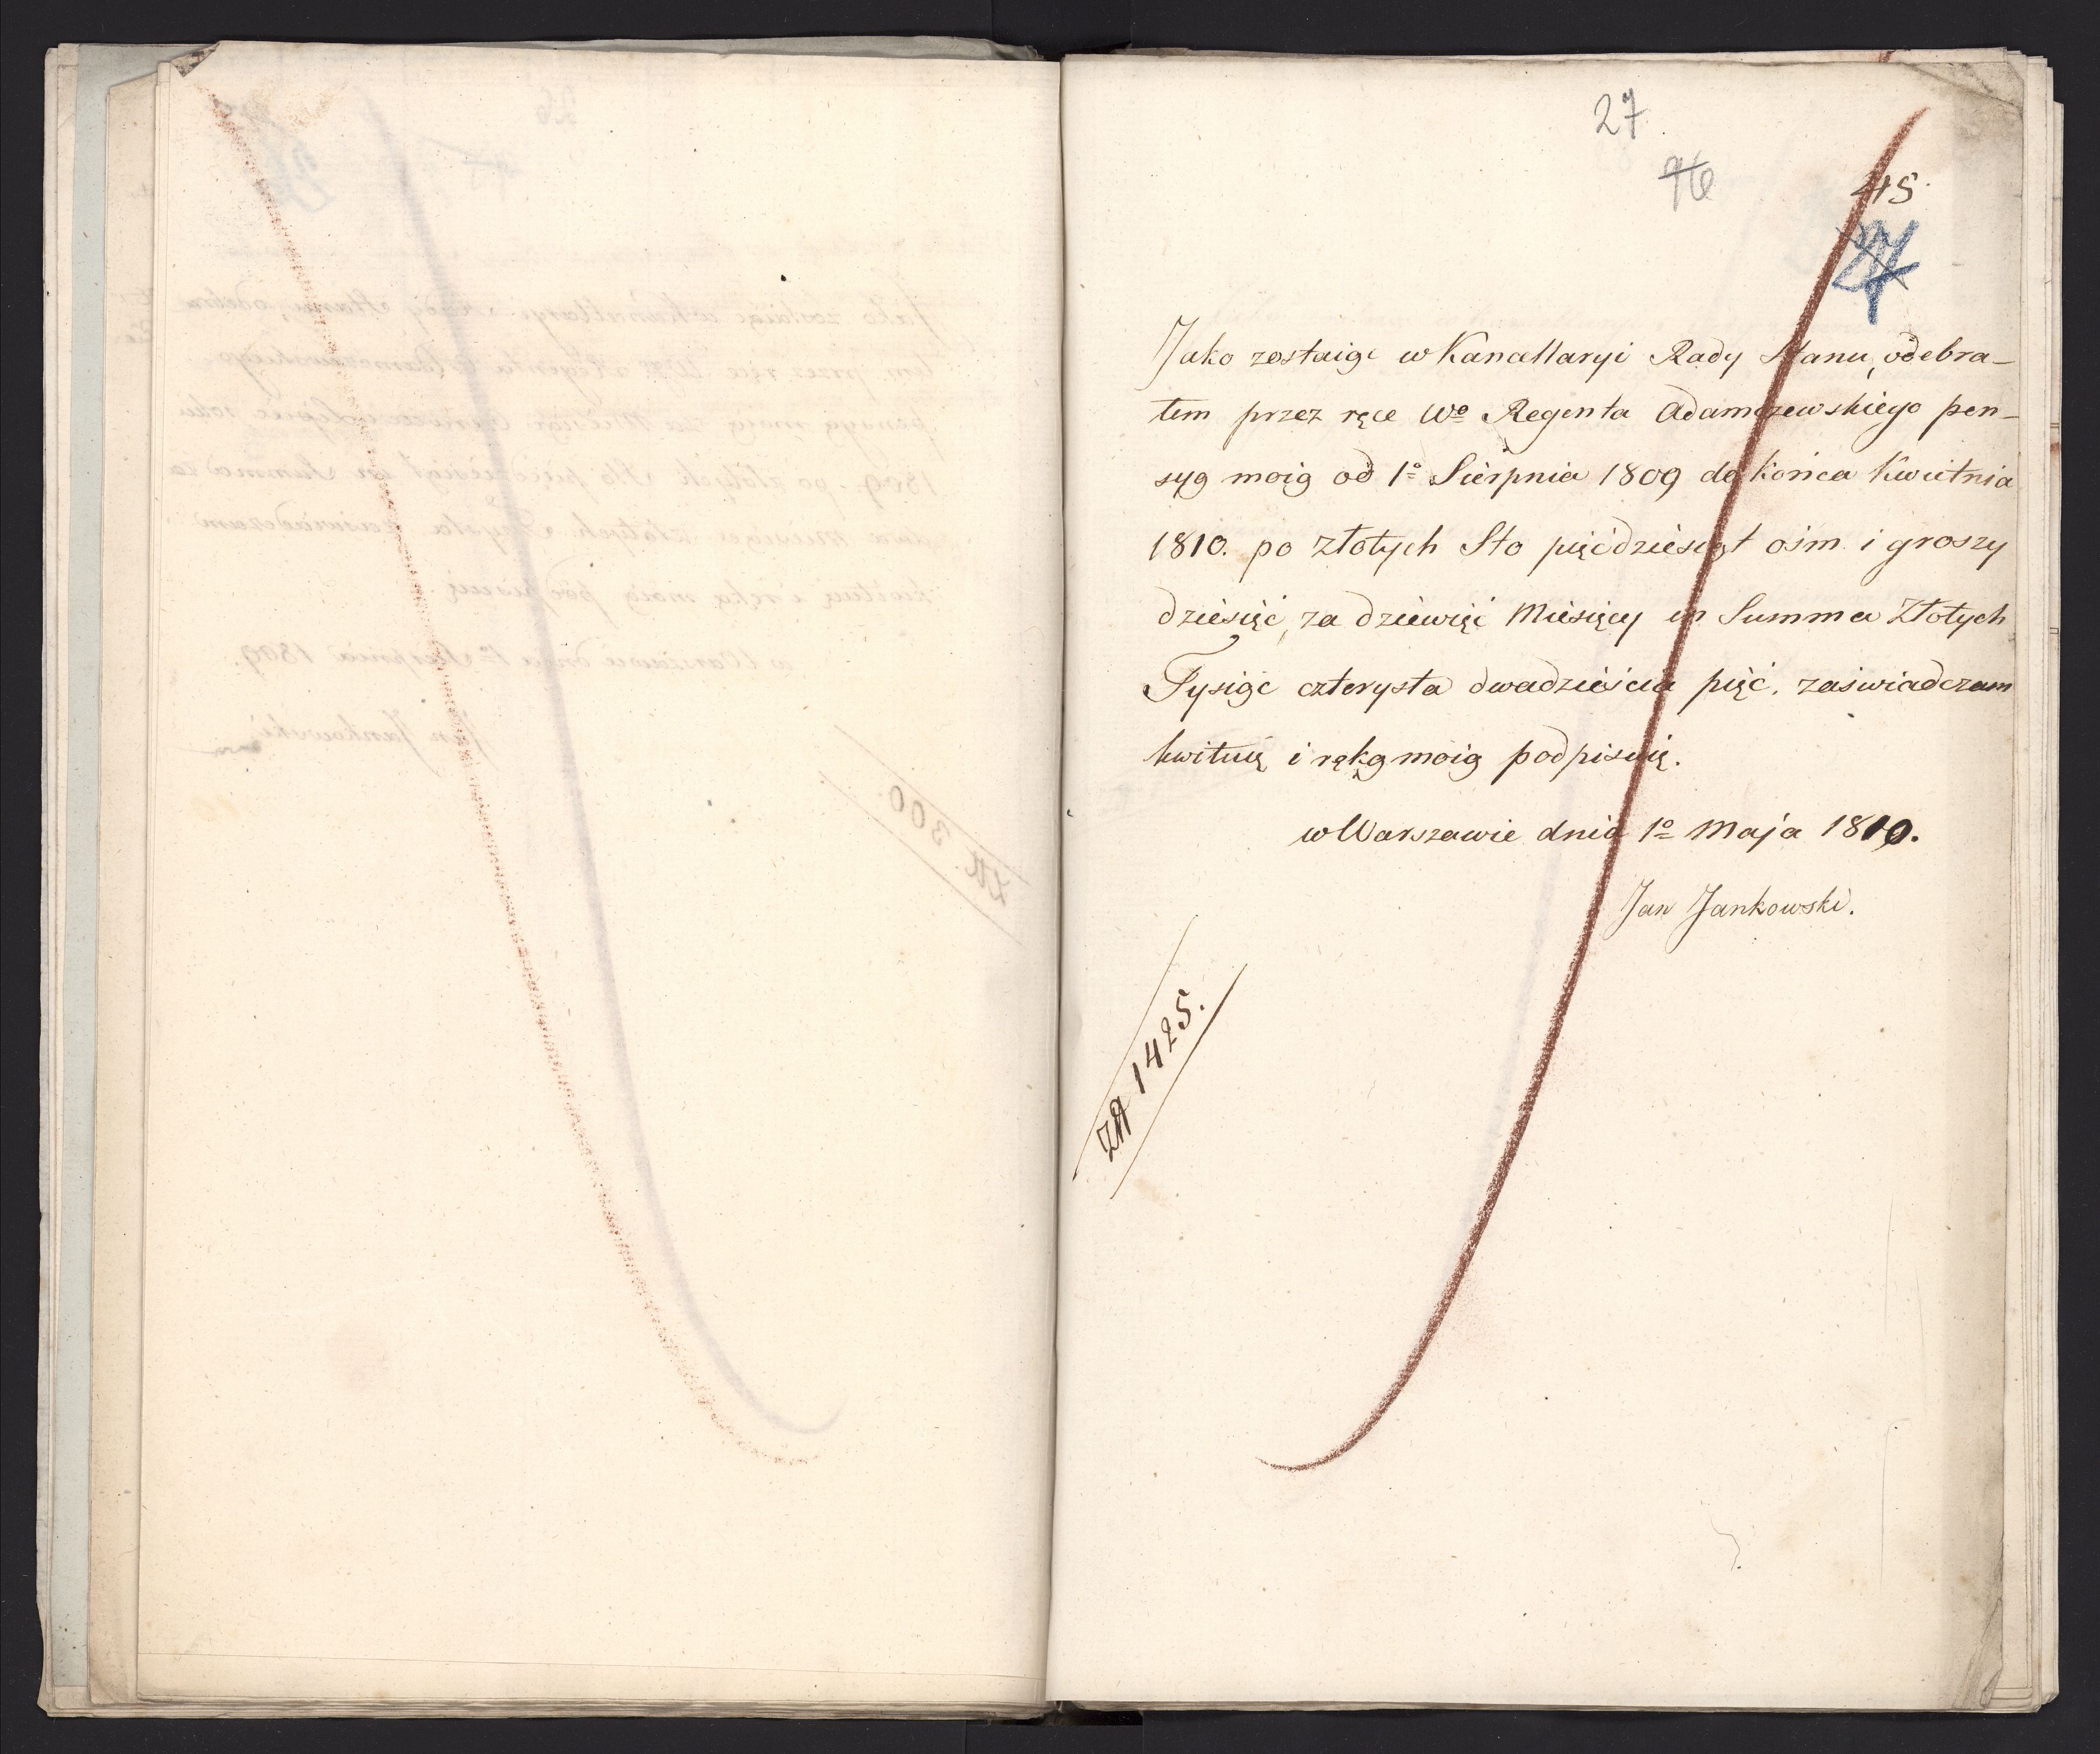 27.
96
45.
27
Jako zostaiąc w Kancellaryi Rady Stanu, odebra-
łem przez ręce Wo Regenta Adamczewskiego pen-
syą moią od 1o Sierpnia 1809 do końca Kwietnia
1810. po złotych Sto pięćdziesiąt ośm i groszy
dziesięć, za dziewięć Miesięcy in Summa Złotych
Tysiąc czterysta dwadzieścia pięć. zaświadczam
kwituię i ręką moią podpisuię.
w Warszawie dnia 1o Maja 1810.
Jan Jankowski.
Zł 1425.